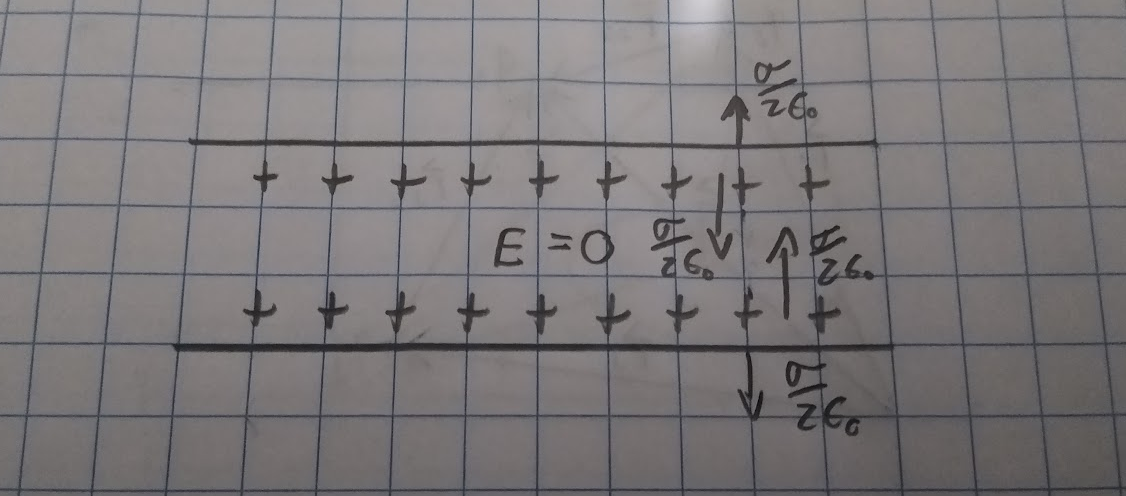 σ/2ϵ₀
+ + + + + + + + +
E = 0 σ/2ϵ₀ σ/2ϵ₀
+ + + + + + + + +
σ/2ϵ₀